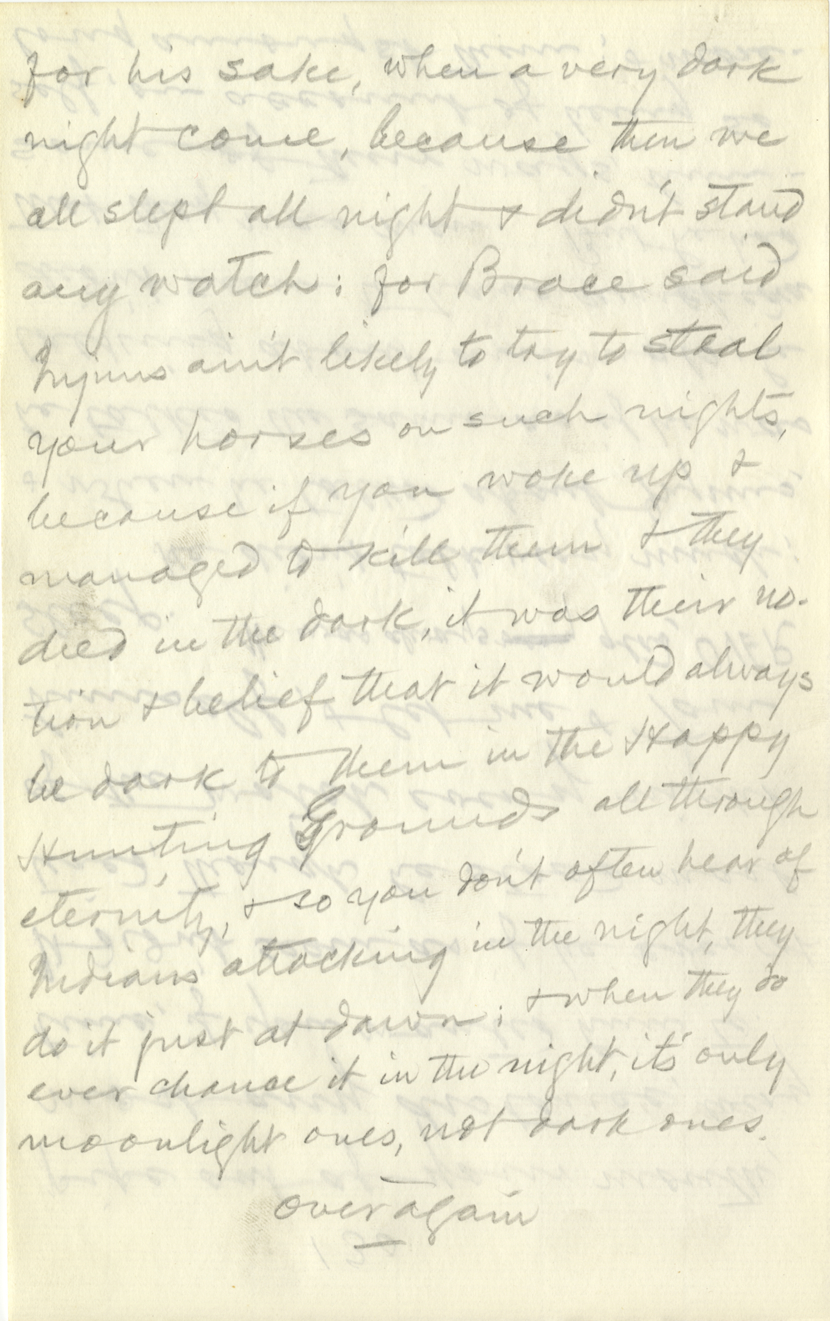 for his sake, when a very dark
night come, because then we
all slept all night & didn't stand
any watch; for Brace said
Injuns ain't likely to try to steal
your horses on such nights,
because if you woke up &
managed to kill them & they
died in the dark, it was their no-
tion & belief that it would always
be dark to them in the Happy
Hunting Grounds all through
eternity, & so you don't often hear of
Indians attacking in the night, they
do it just at dawn; & when they do
ever chance it in the night, it's only
moonlight ones, not dark ones.
over again